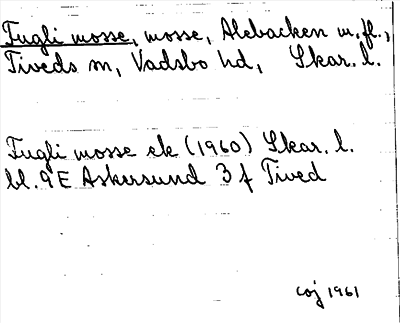 Fugli mosse, mosse, Alebacken m.fl.,
Tiveds sn, Vadsbo hd, Skar. l.
Fugli mosse ek (1960) Skar. l.
bl. 9E Askersund 3 f Tived
COJ 1961